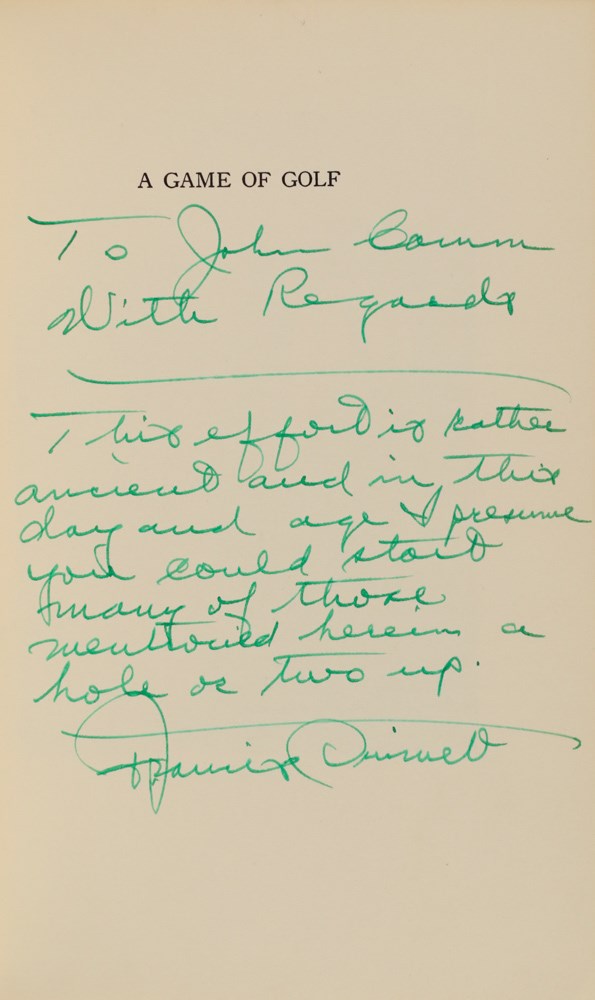 A GAME OF GOLF
To John Comm
With Regards
This effort is rather
ancient and in this
day and age I presume
you could start
many of those
mentioned herein a
hole or two up.
Francis Ouimet